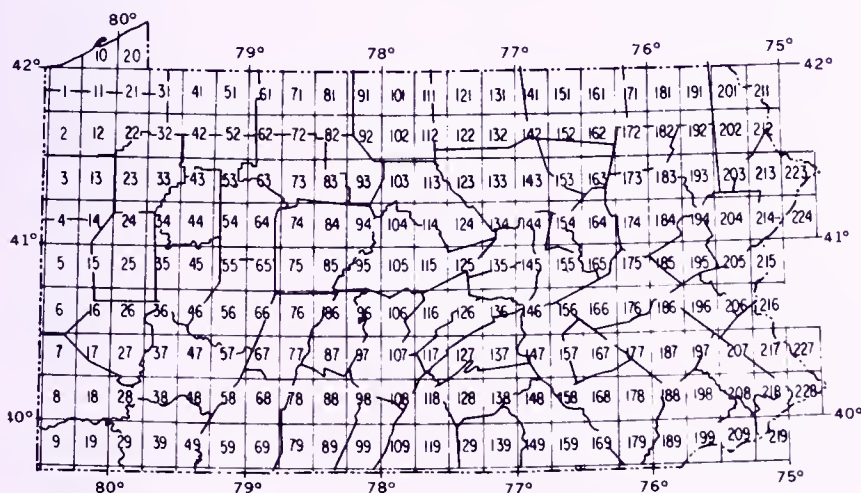 80°
10 20
79° 78° 77° 76° 75°
42° 42°
1 11 21 31 41 51 61 71 81 91 101 111 121 131 141 151 161 171 181 191 201 211
2 12 22 32 42 52 62 72 82 92 102 112 122 132 142 152 162 172 182 192 202 212
3 13 23 33 43 53 63 73 83 93 103 113 123 133 143 153 163 173 183 193 203 213 223
4 14 24 34 44 54 64 74 84 94 104 114 124 134 144 154 164 174 184 194 204 214 224
41° 41°
5 15 25 35 45 55 65 75 85 95 105 115 125 135 145 155 165 175 185 195 205 215
6 16 26 36 46 56 66 76 86 96 106 116 126 136 146 156 166 176 186 196 206 216
7 17 27 37 47 57 67 77 87 97 107 117 127 137 147 157 167 177 187 197 207 217 227
8 18 28 38 48 58 68 78 88 98 108 118 128 138 148 158 168 178 188 198 208 218 228
40° 40°
9 19 29 39 49 59 69 79 89 99 109 119 129 139 149 159 169 179 189 199 209 219
80° 79° 78° 77° 76° 75°